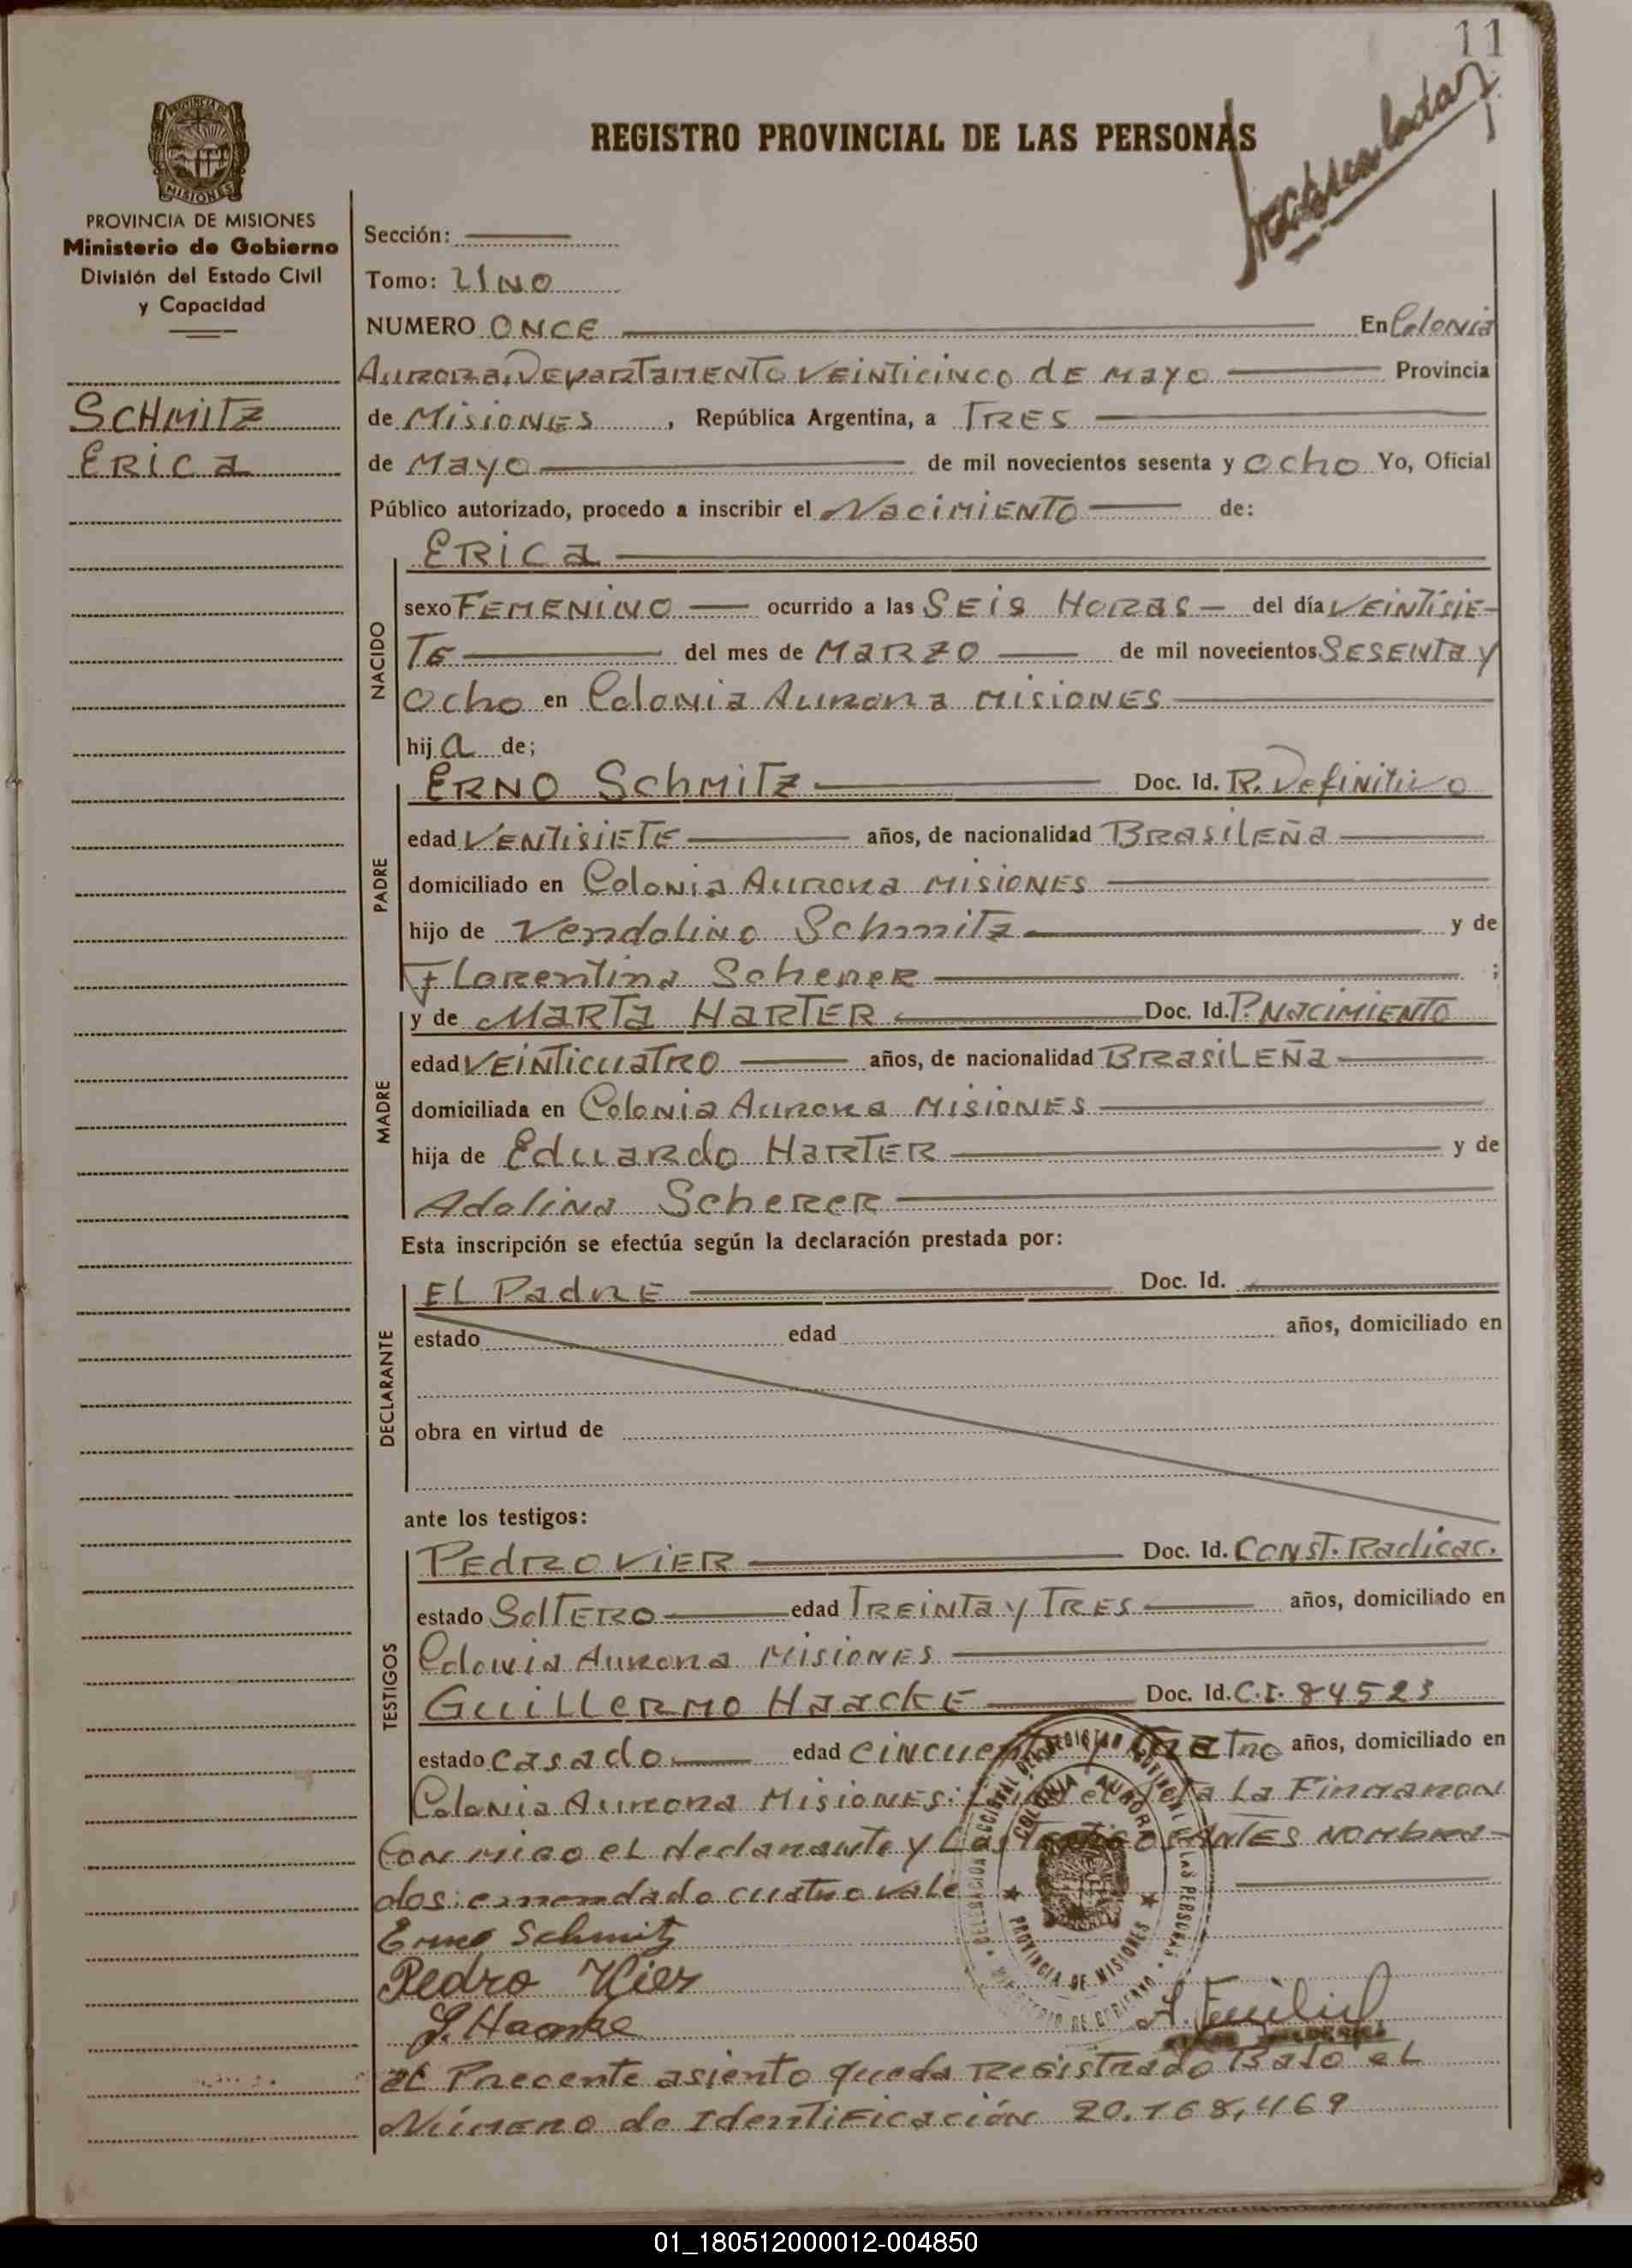 11
REGISTRO PROVINCIAL DE LAS PERSONAS
PROVINCIA DE
MISIONES
PROVINCIA DE MISIONES
Ministerio de Gobierno
División del Estado Civil
y Capacidad
SCHMITZ
ERICA
Sección:
Tomo: UNO
NUMERO ONCE En Colonia
Aurora, Departamento Veinticinco de Mayo Provincia
de Misiones, República Argentina, a TRES
de Mayo de mil novecientos sesenta y ocho Yo, Oficial
Público autorizado, procedo a inscribir el Nacimiento de:
NACIDO
ERICA
sexo FEMENINO ocurrido a las SEIS HORAS del día VEINTISIE-
TE del mes de MARZO de mil novecientos SESENTA y
ocho en Colonia Aurora MISIONES
hija de;
PADRE
ERNO SCHMITZ Doc. Id. R. Definitivo
edad VENTISIETE años, de nacionalidad BRASILEÑA
domiciliado en Colonia Aurora MISIONES
hijo de Vendolino Schmitz y de
Florentina Scherer ;
MADRE
y de MARTA HARTER Doc. Id. P. NACIMIENTO
edad VEINTICUATRO años, de nacionalidad BRASILEÑA
domiciliada en Colonia Aurora MISIONES
hija de Eduardo HARTER y de
Adolina Scherer
Esta inscripción se efectúa según la declaración prestada por:
DECLARANTE
EL PADRE Doc. Id.
estado edad años, domiciliado en
obra en virtud de
ante los testigos:
TESTIGOS
PEDRO VIER Doc. Id. CONST. Radicac.
estado SolTERO edad TREINTA y TRES años, domiciliado en
Colonia Aurora MISIONES
Guillermo Haacke Doc. Id. C.I. 84523
estado casado edad cincuenta y cuatro años, domiciliado en
Colonia Aurora Misiones: Leída el acta La Firmaron
Conmigo el declarante y Los Testigos ANTES NOMbra-
dos: enmendado cuatro vale
Erno Schmitz
Pedro Vier
G. Haacke
COLONIA AURORA
PROVINCIA DE MISIONES
El Precente asiento queda Registrado Bajo el
Número de Identificación 20.168.469
01_180512000012-004850